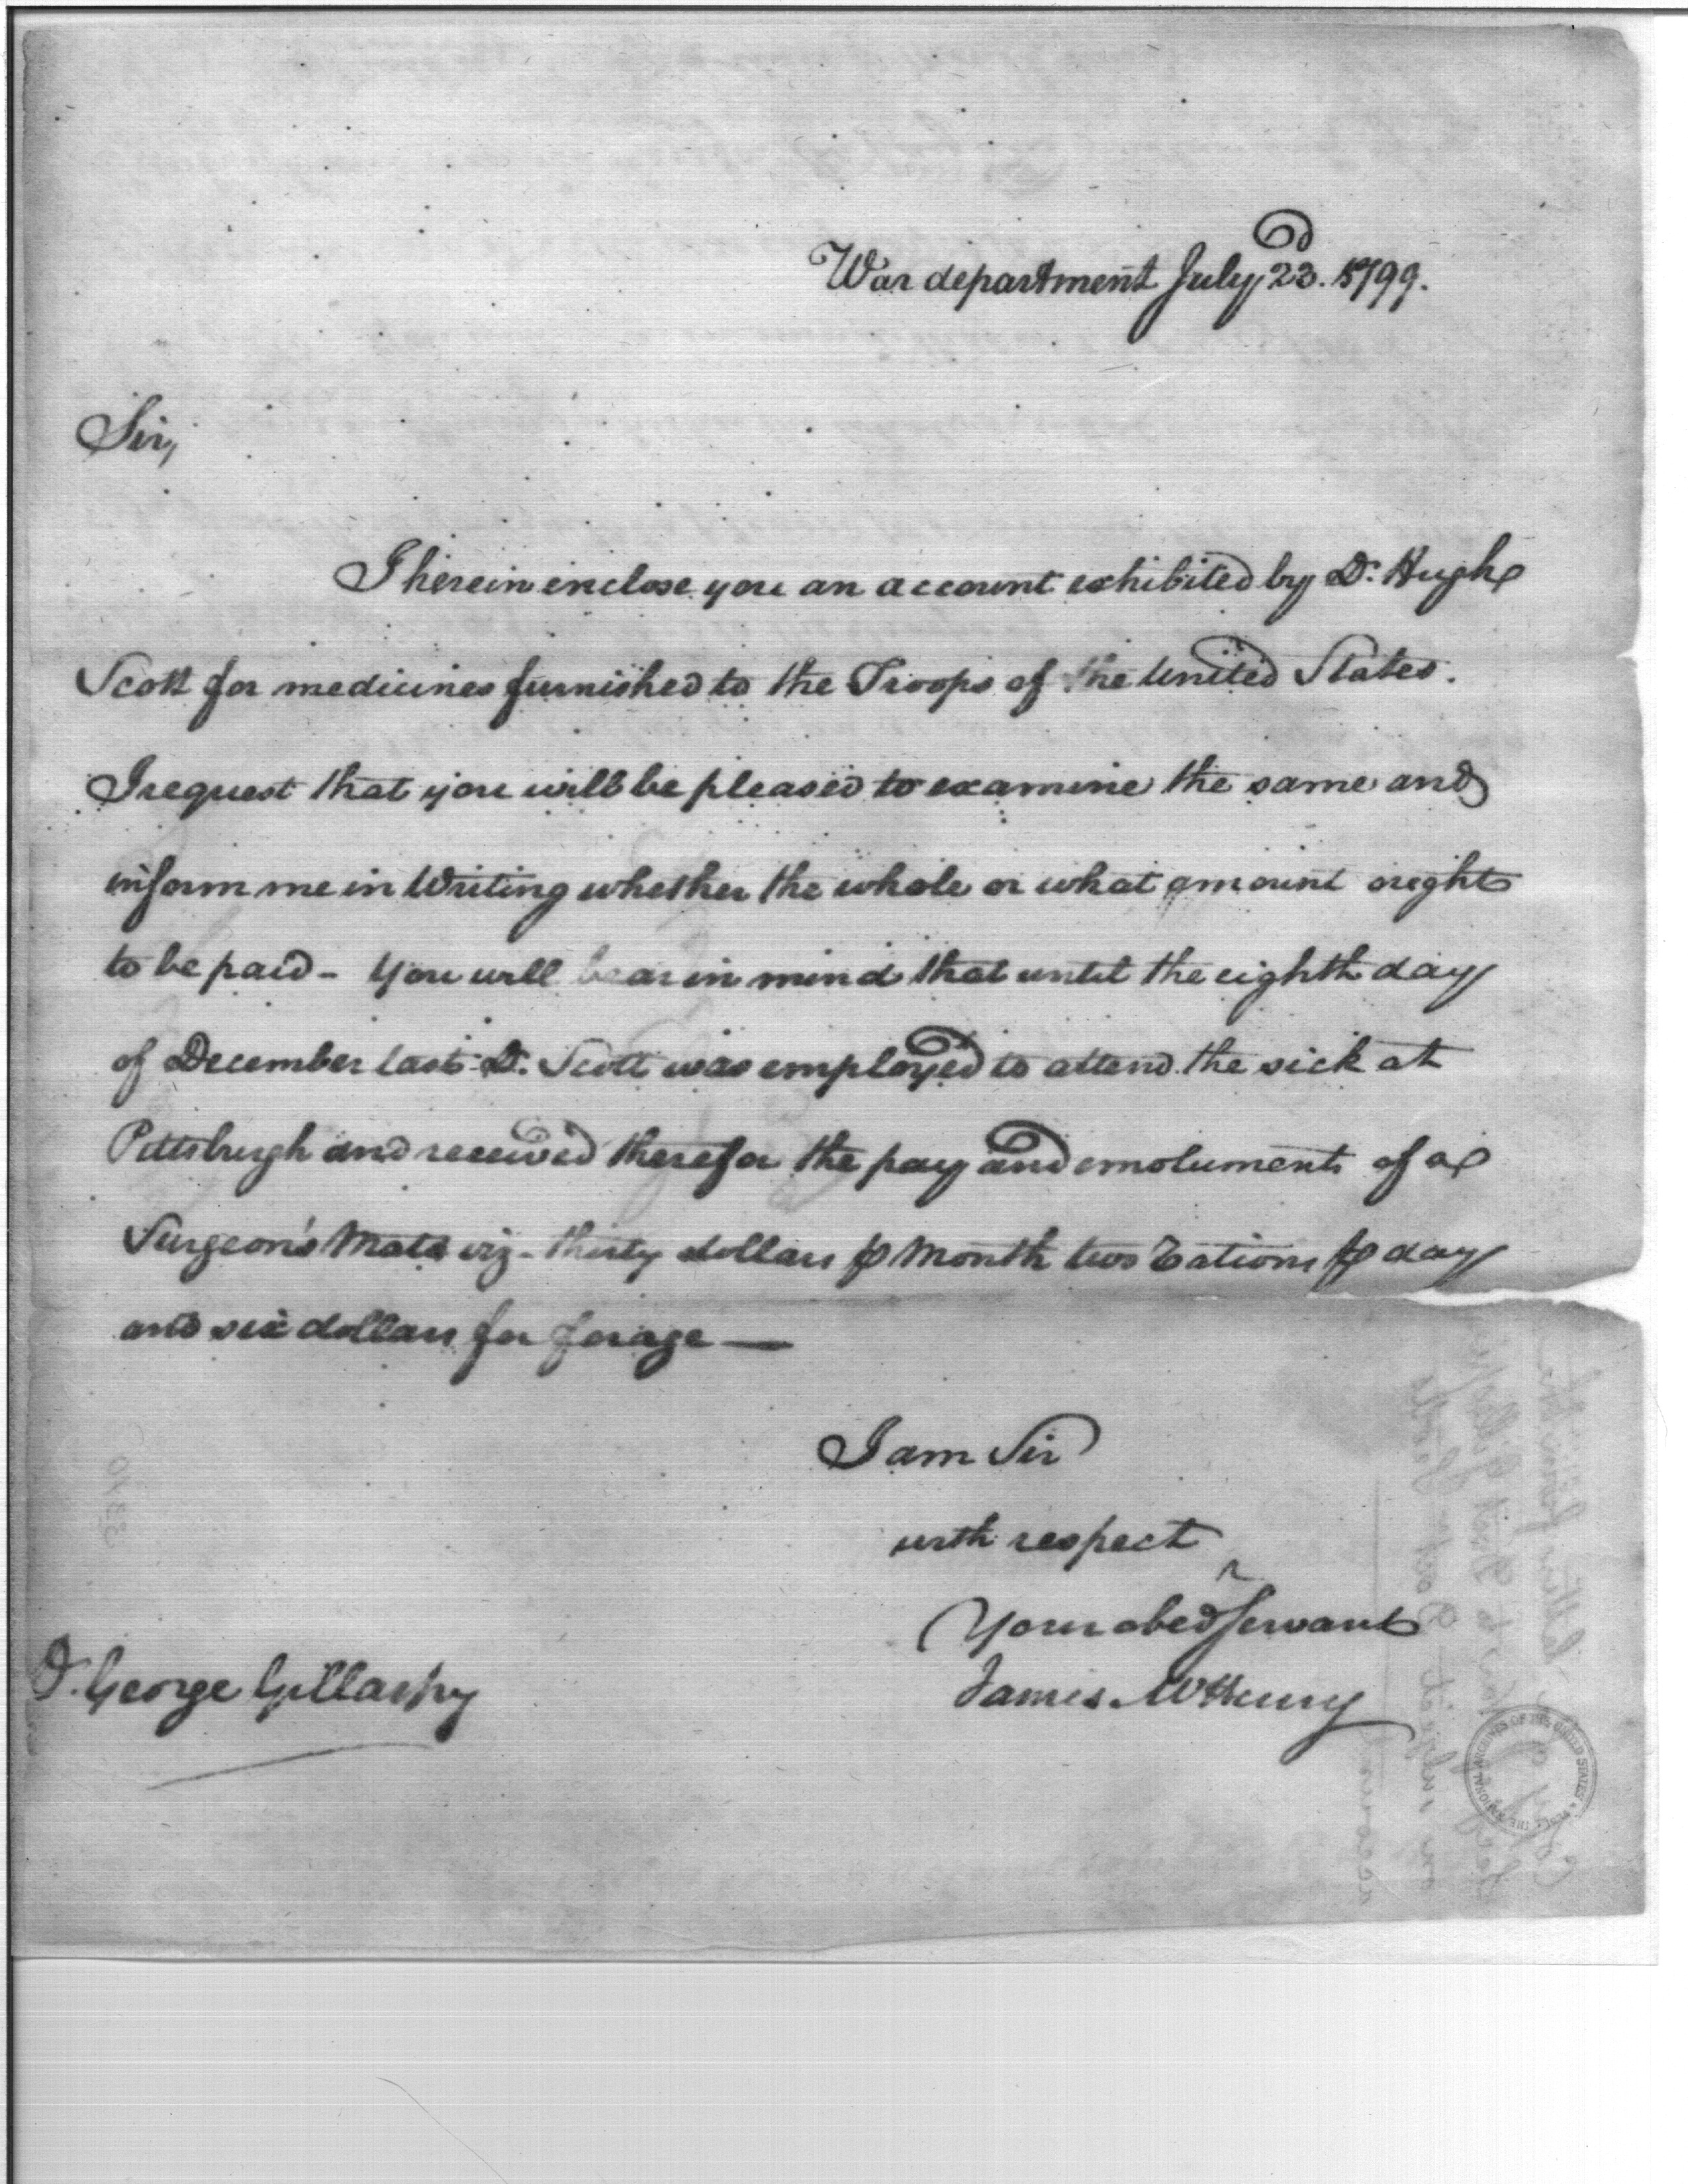 War department July 23.d 1799.
Sir,
I herein enclose you an account exhibited by Dr. Hugh
Scott for medicines furnished to the Troops of the United States.
I request that you will be pleased to examine the same and
inform me in Writing whether the whole or what amount ought
to be paid - You will bear in mind that until the eighth day
of December last Dr. Scott was employed to attend the sick at
Pittsburgh and received therefor the pay and emoluments of a
Surgeon's Mate viz - thirty dollars ⅌ Month two Rations ⅌ day
and six dollars for forage —
I am Sir
with respect
Your obed Servant
James McHenry
Dr. George Gillaspy
THE NATIONAL ARCHIVES OF THE UNITED STATES